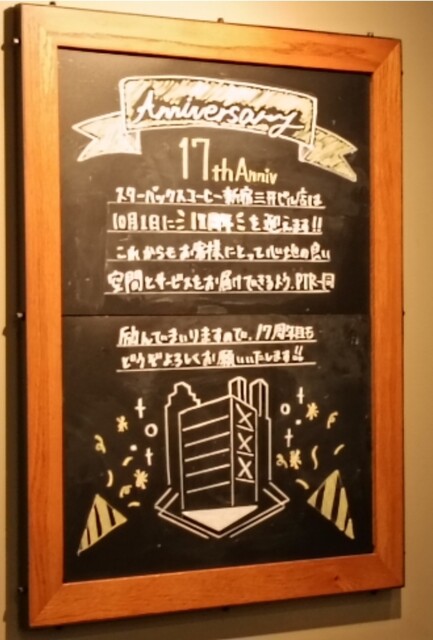 Anniversary
17th Anniv
スターバックスコーヒー新宿三井ビル店は
10月1日に 17周年 を迎えます!!
これからもお客様にとって心地の良い
空間とサービスをお届けできるよう、PTR一同
励んでまいりますので、17周年目も
どうぞよろしくお願いいたします!!